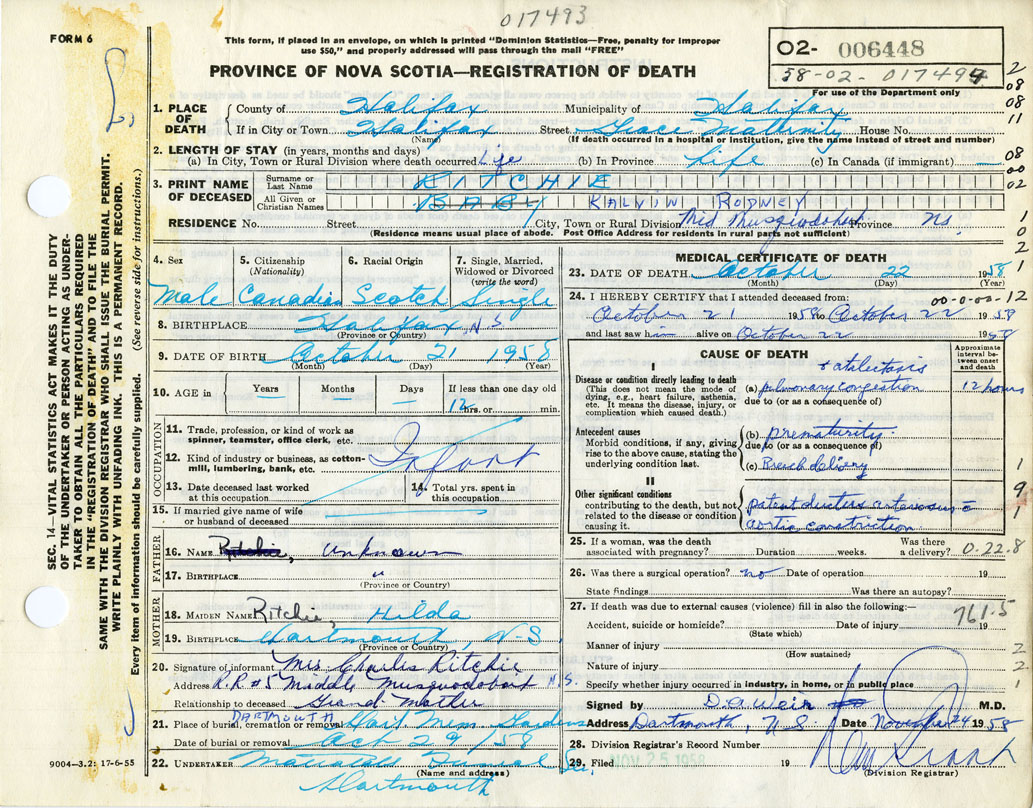 017493
FORM 6
This form, if placed in an envelope, on which is printed "Dominion Statistics—Free, penalty for improper
use $50," and properly addressed will pass through the mail "FREE"
PROVINCE OF NOVA SCOTIA—REGISTRATION OF DEATH
02- 006448
58-02-017494
For use of the Department only
1. PLACE OF DEATH
County of Halifax Municipality of Halifax
If in City or Town Halifax Street Grace Maternity House No.
(Name) (If death occurred in a hospital or institution, give the name instead of street and number)
2. LENGTH OF STAY (in years, months and days)
(a) In City, Town or Rural Division where death occurred Life (b) In Province Life (c) In Canada (if immigrant) —
3. PRINT NAME OF DECEASED
Surname or Last Name RITCHIE
All Given or Christian Names BABY KALVIN RODNEY
RESIDENCE No. Street City, Town or Rural Division Mid Musquodoboit Province N.S.
(Residence means usual place of abode. Post Office Address for residents in rural parts not sufficient)
4. Sex Male
5. Citizenship (Nationality) Canadian
6. Racial Origin Scotch
7. Single, Married, Widowed or Divorced (write the word) Single
8. BIRTHPLACE Halifax, N S
(Province or Country)
9. DATE OF BIRTH October 21 1958
(Month) (Day) (Year)
10. AGE in Years — Months — Days — If less than one day old
12 hrs. or min.
OCCUPATION
11. Trade, profession, or kind of work as
spinner, teamster, office clerk, etc.
12. Kind of industry or business, as cotton-
mill, lumbering, bank, etc.
Infant
13. Date deceased last worked
at this occupation
14. Total yrs. spent in
this occupation
15. If married give name of wife
or husband of deceased
FATHER
16. NAME Ritchie, Unknown
17. BIRTHPLACE "
(Province or Country)
MOTHER
18. MAIDEN NAME Ritchie, Hilda
19. BIRTHPLACE Dartmouth, N.S.
(Province or Country)
20. Signature of informant Mrs Charles Ritchie
Address R.R. #5 Middle Musquodoboit N.S.
Relationship to deceased Grand Mother
DARTMOUTH
21. Place of burial, cremation or removal Dart Mem Gardens
Date of burial or removal Oct 29/58
22. UNDERTAKER Funeral
(Name and address)
Dartmouth
9004—3.2: 17-6-55
MEDICAL CERTIFICATE OF DEATH
23. DATE OF DEATH October 22 1958
(Month) (Day) (Year)
00-0-00-12
24. I HEREBY CERTIFY that I attended deceased from:
October 21 1958 to October 22 1958
and last saw him alive on October 22 1958
CAUSE OF DEATH
Approximate interval between onset and death
I
Disease or condition directly leading to death
(This does not mean the mode of
dying, e.g., heart failure, asthenia,
etc. It means the disease, injury, or
complication which caused death.)
+ atelectasis
(a) pulmonary congestion 12 hours
due to (or as a consequence of)
Antecedent causes
Morbid conditions, if any, giving
rise to the above cause, stating the
underlying condition last.
(b) prematurity.
due to (or as a consequence of)
(c) Breech delivery
II
Other significant conditions
contributing to the death, but not
related to the disease or condition
causing it.
patent ductus arteriosus c̄
aortic constriction
25. If a woman, was the death
associated with pregnancy? Duration weeks. Was there
a delivery? 0.22.8
26. Was there a surgical operation? no Date of operation 19
State findings Was there an autopsy?
27. If death was due to external causes (violence) fill in also the following:—
761.5
Accident, suicide or homicide? Date of injury 19
(State which)
Manner of injury
(How sustained)
Nature of injury
Specify whether injury occurred in industry, in home, or in public place
Signed by D.A. Weir M.D.
Address Dartmouth, N S Date November 24 1958
28. Division Registrar's Record Number
29. Filed NOV 25 1958 19
(Division Registrar)
2
08
08
11
08
00
02
1
0
2
1
1
9
1
2
2
1
SEC. 14—VITAL STATISTICS ACT MAKES IT THE DUTY
OF THE UNDERTAKER OR PERSON ACTING AS UNDER-
TAKER TO OBTAIN ALL THE PARTICULARS REQUIRED
IN THE "REGISTRATION OF DEATH" AND TO FILE THE
SAME WITH THE DIVISION REGISTRAR WHO SHALL ISSUE THE BURIAL PERMIT.
WRITE PLAINLY WITH UNFADING INK. THIS IS A PERMANENT RECORD.
Every item of information should be carefully supplied. (See reverse side for instructions.)